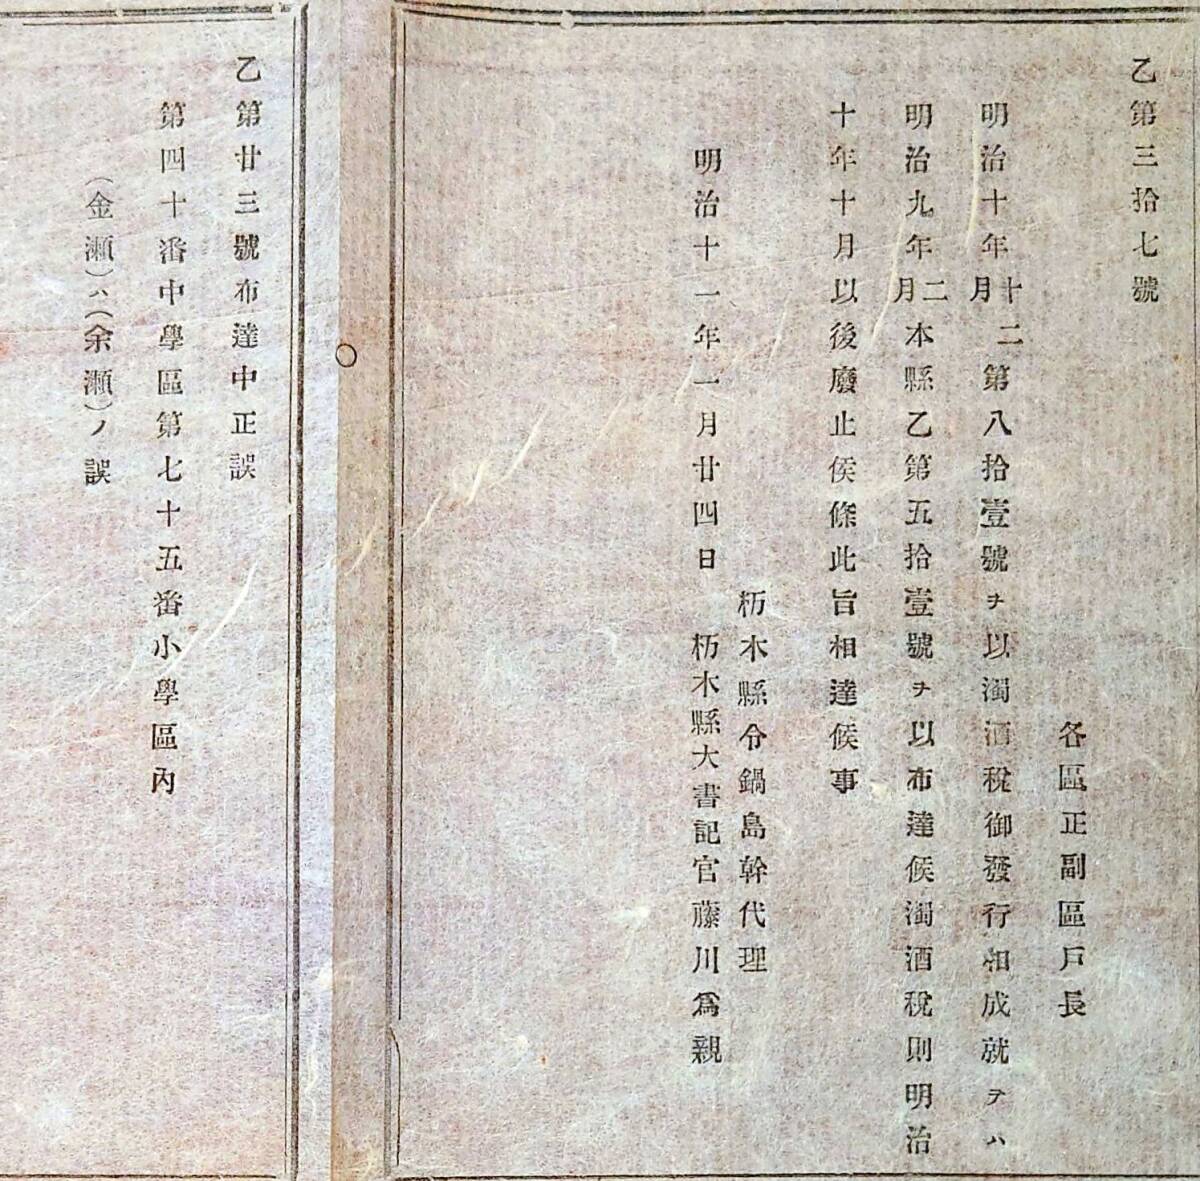 乙第三拾七號
各區正副區戶長
明治十年十二月第八拾壹號ヲ以濁酒稅御發行相成就テハ
明治九年二月本縣乙第五拾壹號ヲ以布達候濁酒稅則明治
十年十月以後廢止候條此旨相達候事
栃木縣令鍋島幹代理
明治十一年一月廿四日　栃木縣大書記官藤川爲親
乙第廿三號布達中正誤
第四十番中學區第七十五番小學區內
(金瀬)ハ(余瀬)ノ誤